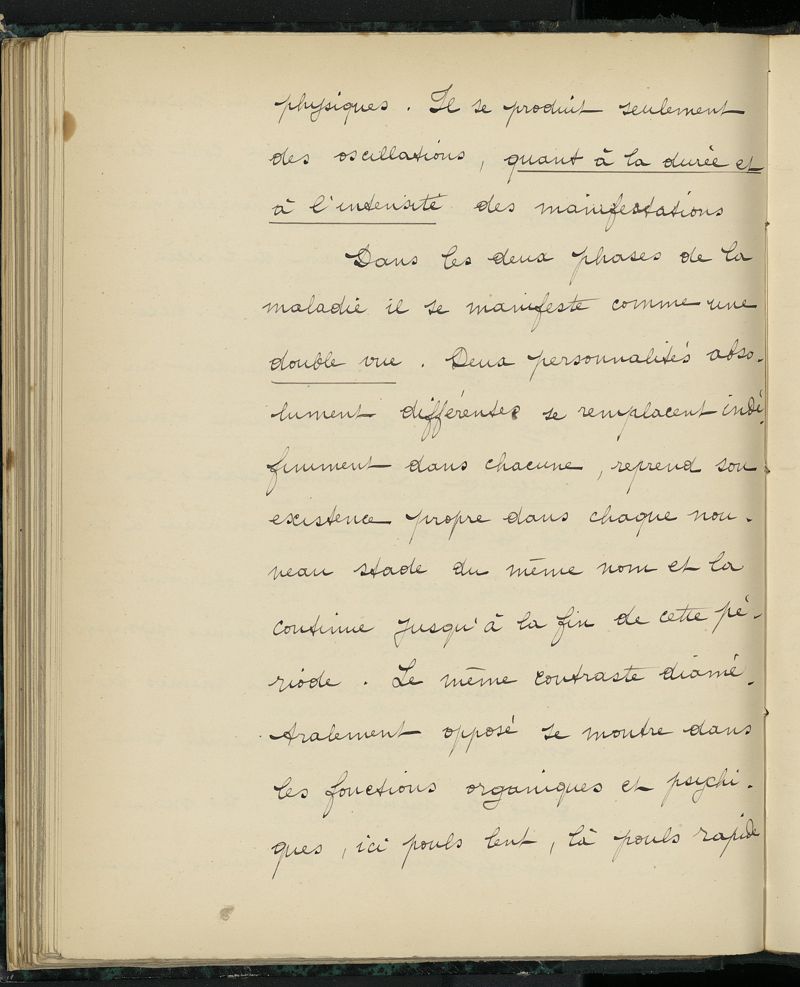 physiques. Il se produit seulement
des oscillations, quant à la durée et
à l'intensité des manifestations
Dans les deux phases de la
maladie il se manifeste comme une
double vue. Deux personnalités abso-
lument différentes se remplacent indé-
finiment dans chacune, reprend son
existence propre dans chaque nou-
veau stade du même nom et la
continue jusqu'à la fin de cette pé-
riode. Le même contraste diamé-
tralement opposé se montre dans
les fonctions organiques et psychi-
ques, ici pouls lent, là pouls rapide